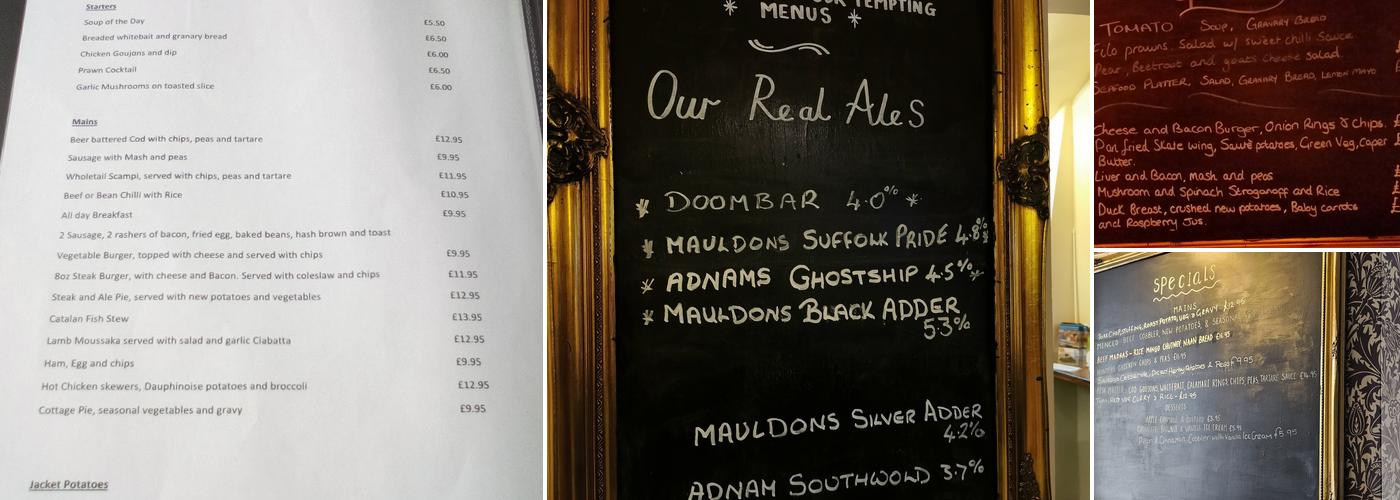 Starters
Soup of the Day £5.50
Breaded whitebait and granary bread £6.50
Chicken Goujons and dip £6.00
Prawn Cocktail £6.50
Garlic Mushrooms on toasted slice £6.00
Mains
Beer battered Cod with chips, peas and tartare £12.95
Sausage with Mash and peas £9.95
Wholetail Scampi, served with chips, peas and tartare £11.95
Beef or Bean Chilli with Rice £10.95
All day Breakfast £9.95
2 Sausage, 2 rashers of bacon, fried egg, baked beans, hash brown and toast
Vegetable Burger, topped with cheese and served with chips £9.95
8oz Steak Burger, with cheese and Bacon. Served with coleslaw and chips £11.95
Steak and Ale Pie, served with new potatoes and vegetables £12.95
Catalan Fish Stew £13.95
Lamb Moussaka served with salad and garlic Ciabatta £12.95
Ham, Egg and chips £9.95
Hot Chicken skewers, Dauphinoise potatoes and broccoli £12.95
Cottage Pie, seasonal vegetables and gravy £9.95
Jacket Potatoes
TEMPTING
MENUS
Our Real Ales
DOOMBAR 4.0%
MAULDONS SUFFOLK PRIDE 4.8%
ADNAMS GHOSTSHIP 4.5%
MAULDONS BLACK ADDER
5.3%
MAULDONS SILVER ADDER
4.2%
ADNAM SOUTHWOLD 3.7%
TOMATO SOUP, GRANARY BREAD
Filo prawns. Salad w/ sweet chilli Sauce
Pear, Beetroot and goats cheese salad.
SEAFOOD PLATTER, SALAD, GRANARY BREAD, LEMON MAYO
Cheese and Bacon Burger, Onion Rings & Chips.
Pan fried Skate wing, Sauté potatoes, Green Veg, Caper
Butter.
Liver and Bacon, mash and peas
Mushroom and Spinach Stroganoff and Rice
Duck Breast, crushed new potatoes, Baby carrots
and Raspberry Jus.
SPECIALS
MAINS
STUFFING, ROAST POTATO, VEG & GRAVY £12.95
MINCED BEEF COBBLER, NEW POTATOES, & SEASONAL
BEEF MADRAS - RICE MANGO CHUTNEY NAAN BREAD
CHICKEN CHIPS & PEAS
Sausage Casserole, Potatoes & Peas £9.95
COD GOUJONS, WHITEBAIT, CALAMARI RINGS, CHIPS, PEAS, TARTARE SAUCE
CURRY & RICE - £12.95
DESSERTS
& VANILLA ICE CREAM £5.95
Pear & Cinnamon Cobbler with Vanilla Ice Cream £5.95